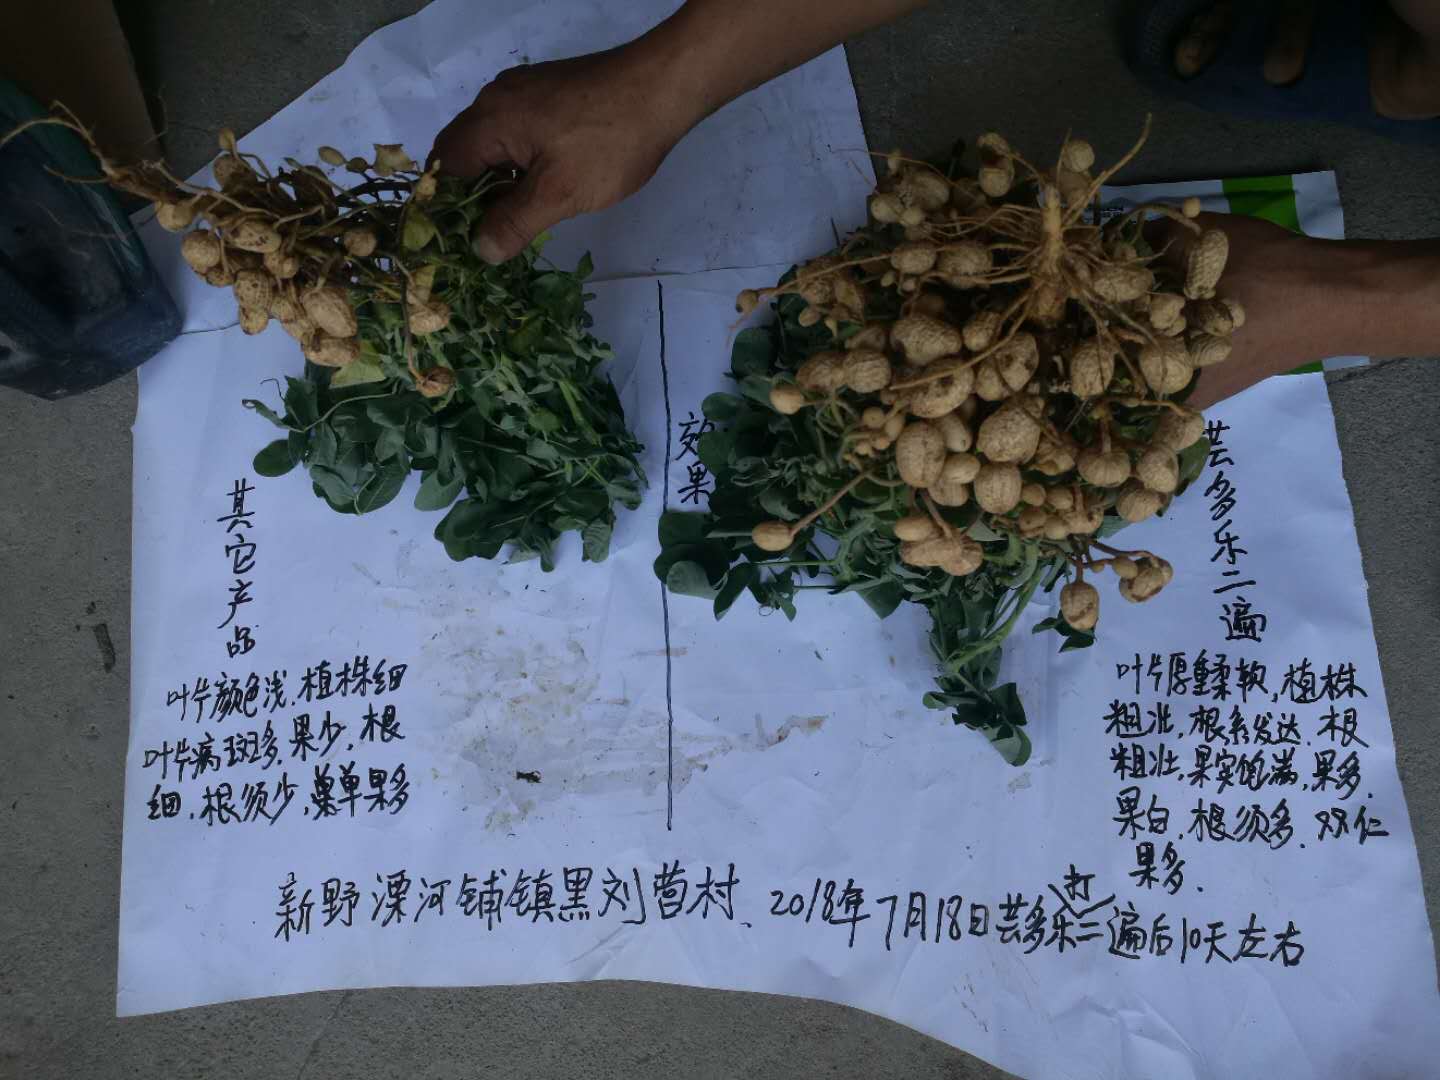 效果
其它产品
叶片颜色浅.植株细
叶片病斑多,果少,根
细,根须少,单果多
芸多乐二遍
叶片厚重柔软,植株
粗壮,根系发达.根
粗壮,果实饱满,果多.
果白.根须多.双仁
果多.
新野溧河铺镇黑刘营村、2018年7月18日芸多乐打二遍后10天左右